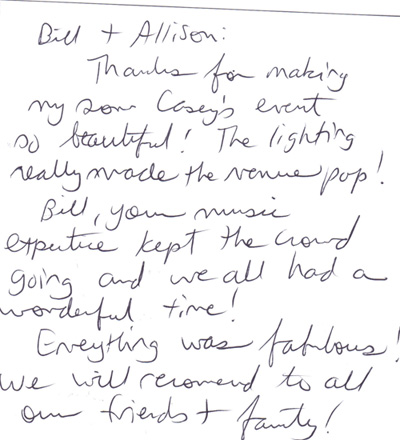 Bill + Allison:
Thanks for making
my son Casey's event
so beautiful! The lighting
really made the venue pop!
Bill, your music
expertice kept the crowd
going and we all had a
wonderful time!
Everything was fabulous!
We will recomend to all
our friends + family!